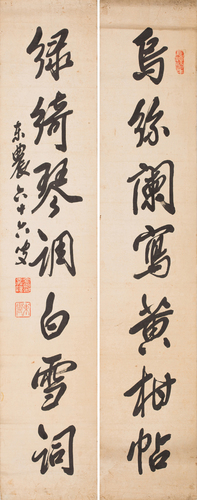 烏絲闌寫黃柑帖
綠綺琴調白雪詞
東農六十六叟